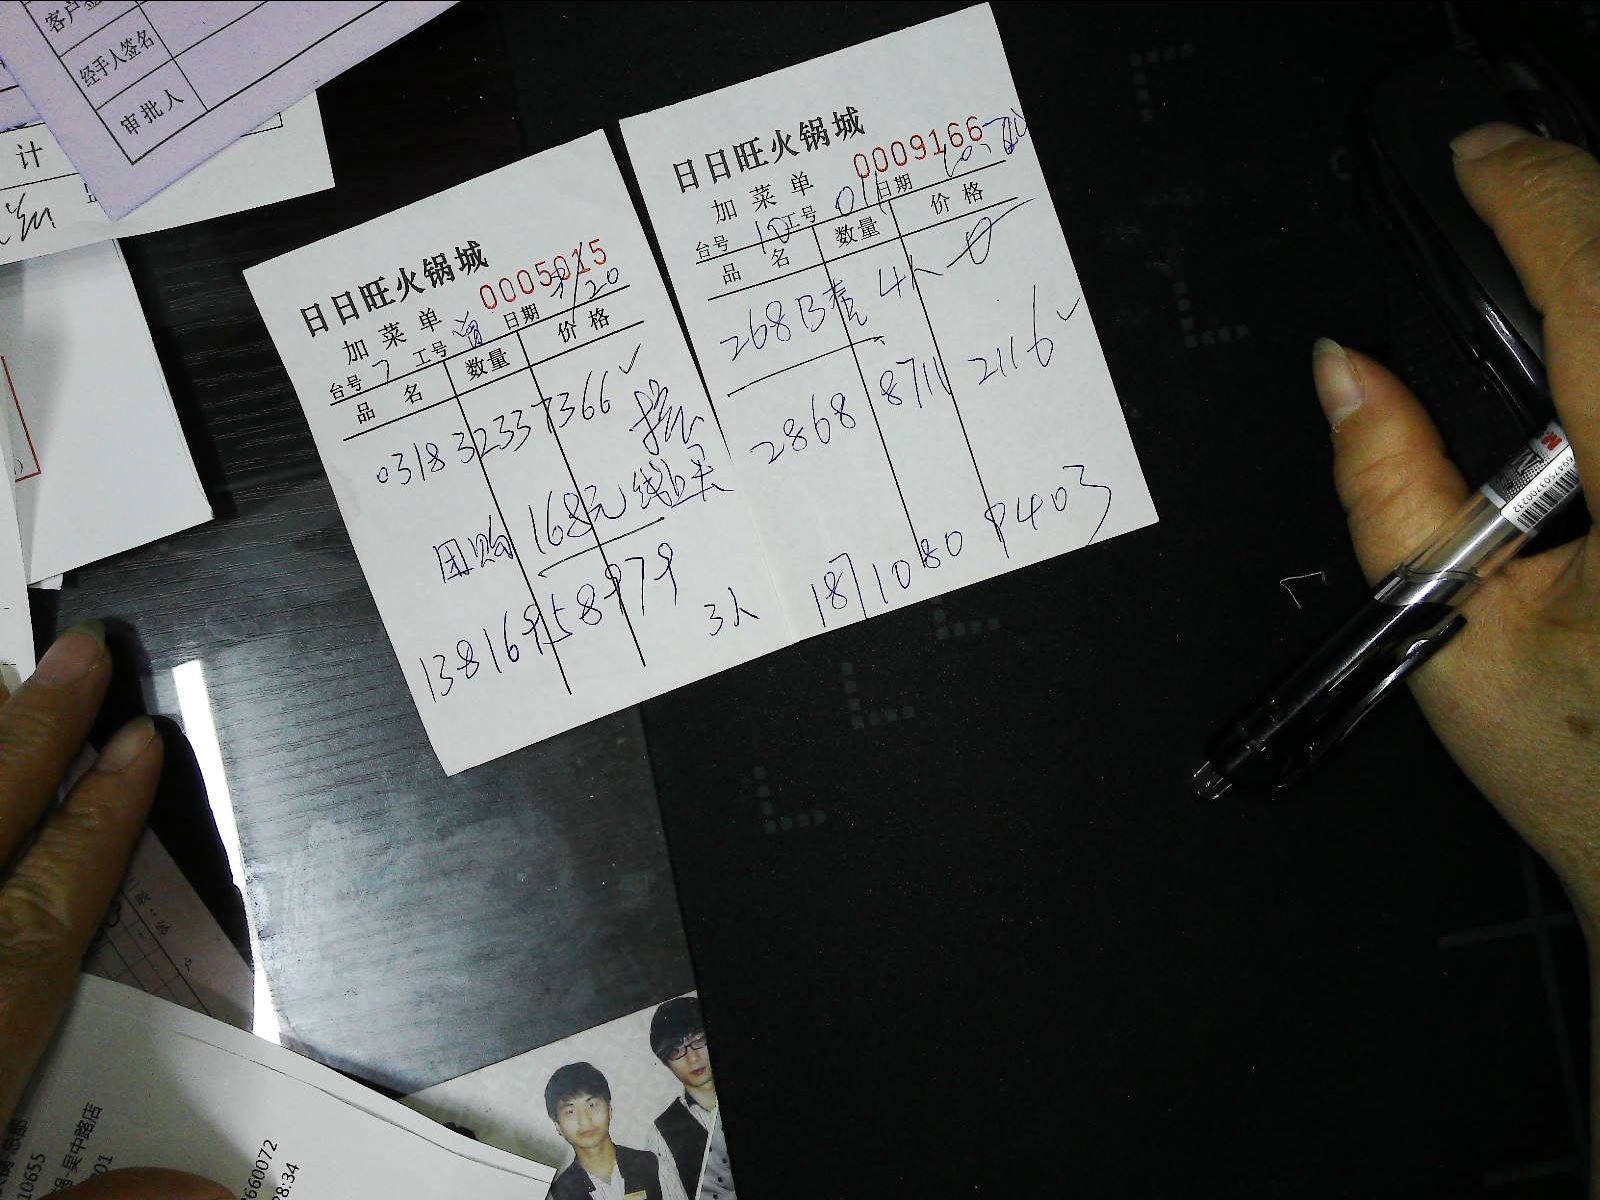 客户签
经手人签名
审批人
计
日日旺火锅城
0005015
加菜单
台号 7 工号 日期 /20
品名 数量 价格
0318 3233 7366 ✓
团购 168元
13816958979
3人
日日旺火锅城
0009166
加菜单
台号 10 工号 011 日期 10.20
品名 数量 价格
268B套 4人
2868 8711 2116 ✓
18710809403
6987503700232
10655
锅-吴中路店
701
660072
28:34